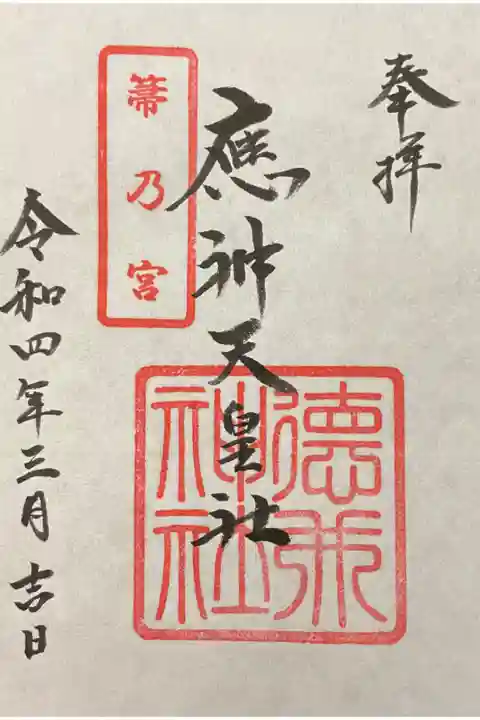 奉拝
應神天皇社
箒乃宮
德
神社
令和四年三月吉日